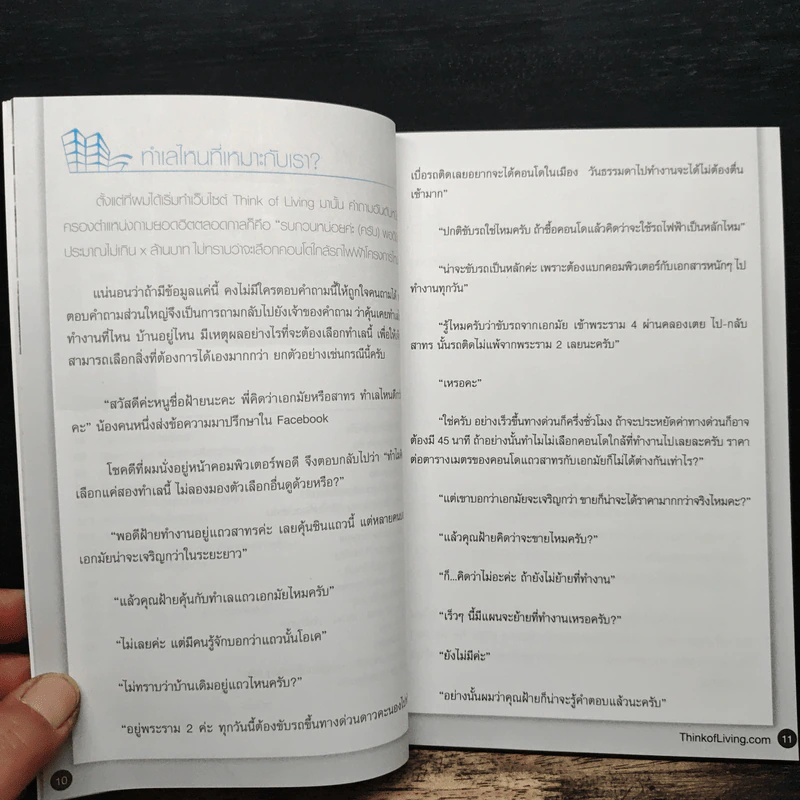 ทำเลไหนที่เหมาะกับเรา?
ตั้งแต่ที่ผมได้เริ่มทำเว็บไซต์ Think of Living มานั้น คำถามอันดับ
ครองตำแหน่งถามยอดฮิตตลอดกาลก็คือ "รบกวนหน่อยค่ะ (ครับ) พอดี
ประมาณไม่เกิน x ล้านบาท ไม่ทราบว่าจะเลือกคอนโดใกล้รถไฟฟ้าโครงการ
แน่นอนว่าถ้ามีข้อมูลแค่นี้ คงไม่มีใครตอบคำถามนี้ให้ถูกใจคนถามได้
ตอบคำถามส่วนใหญ่จึงเป็นการถามกลับไปยังเจ้าของคำถาม ว่าคุ้นเคย
ทำงานที่ไหน บ้านอยู่ไหน มีเหตุผลอย่างไรที่จะต้องเลือกทำเลนี้ เพื่อให้
สามารถเลือกสิ่งที่ต้องการได้เองมากกว่า ยกตัวอย่างเช่นกรณีนี้ครับ
"สวัสดีค่ะหนูชื่อฝ้ายนะคะ พี่คิดว่าเอกมัยหรือสาทร ทำเลไหนดีกว่า
คะ" น้องคนหนึ่งส่งข้อความมาปรึกษาใน Facebook
โชคดีที่ผมนั่งอยู่หน้าคอมพิวเตอร์พอดี จึงตอบกลับไปว่า "ทำไม
เลือกแค่สองทำเลนี้ ไม่ลองมองตัวเลือกอื่นดูด้วยหรือ?"
"พอดีฝ้ายทำงานอยู่แถวสาทรค่ะ เลยคุ้นชินแถวนี้ แต่หลายคน
เอกมัยน่าจะเจริญกว่าในระยะยาว"
"แล้วคุณฝ้ายคุ้นกับทำเลแถวเอกมัยไหมครับ"
"ไม่เลยค่ะ แต่มีคนรู้จักบอกว่าแถวนั้นโอเค"
"ไม่ทราบว่าบ้านเดิมอยู่แถวไหนครับ?"
"อยู่พระราม 2 ค่ะ ทุกวันนี้ต้องขับรถขึ้นทางด่วนดาวคะนอง
10
เบื่อรถติดเลยอยากจะได้คอนโดในเมือง วันธรรมดาไปทำงานจะได้ไม่ต้องตื่น
เช้ามาก"
"ปกติขับรถใช่ไหมครับ ถ้าซื้อคอนโดแล้วคิดว่าจะใช้รถไฟฟ้าเป็นหลักไหม"
"น่าจะขับรถเป็นหลักค่ะ เพราะต้องแบกคอมพิวเตอร์กับเอกสารหนักๆ ไป
ทำงานทุกวัน"
"รู้ไหมครับว่าขับรถจากเอกมัย เข้าพระราม 4 ผ่านคลองเตย ไป-กลับ
สาทร นั้นรถติดไม่แพ้จากพระราม 2 เลยนะครับ"
"เหรอคะ"
"ใช่ครับ อย่างเร็วขึ้นทางด่วนก็ครึ่งชั่วโมง ถ้าจะประหยัดค่าทางด่วนก็อาจ
ต้องมี 45 นาที ถ้าอย่างนั้นทำไมไม่เลือกคอนโดใกล้ที่ทำงานไปเลยละครับ ราคา
ต่อตารางเมตรของคอนโดแถวสาทรกับเอกมัยก็ไม่ได้ต่างกันเท่าไร?"
"แต่เขาบอกว่าเอกมัยจะเจริญกว่า ขายก็น่าจะได้ราคามากกว่าจริงไหมคะ?"
"แล้วคุณฝ้ายคิดว่าจะขายไหมครับ?"
"ก็...คิดว่าไม่อะค่ะ ถ้ายังไม่ย้ายที่ทำงาน"
"เร็วๆ นี้มีแผนจะย้ายที่ทำงานเหรอครับ?"
"ยังไม่มีค่ะ"
"อย่างนั้นผมว่าคุณฝ้ายก็น่าจะรู้คำตอบแล้วนะครับ"
ThinkofLiving.com 11